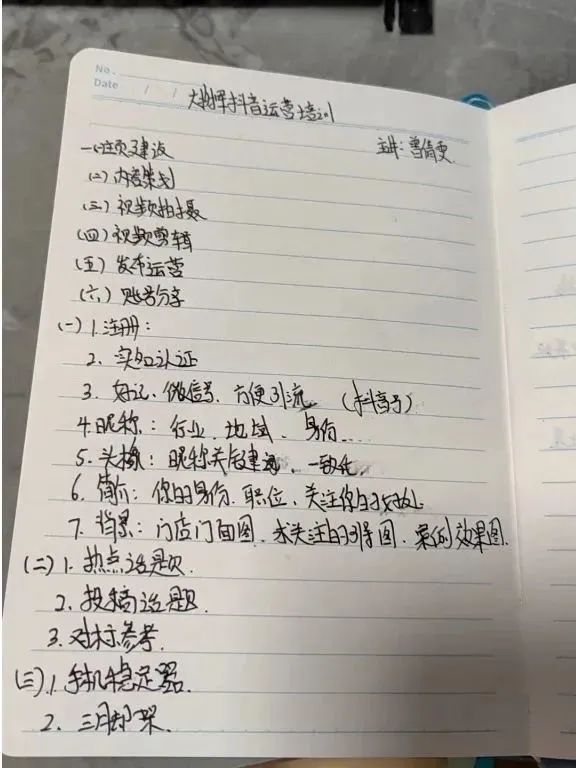 No.
Date / /
抖音运营培训
主讲:曾倩雯
一、主页建设
(二)内容策划
(三)视频拍摄
(四)视频剪辑
(五)发布运营
(六)账号分享
(一)1.注册:
2.实名认证
3.好记、微信号、方便引流 (抖音号)
4.昵称:行业、地域、身份...
5.头像:昵称关联建设、一致化
6.简介:你的身份、职位、关注你的好处
7.背景:门店门面图、求关注的引导图、案例效果图.
(二)1.热点话题.
2.投稿话题.
3.对标参考.
(三)1.手机稳定器.
2.三脚架.